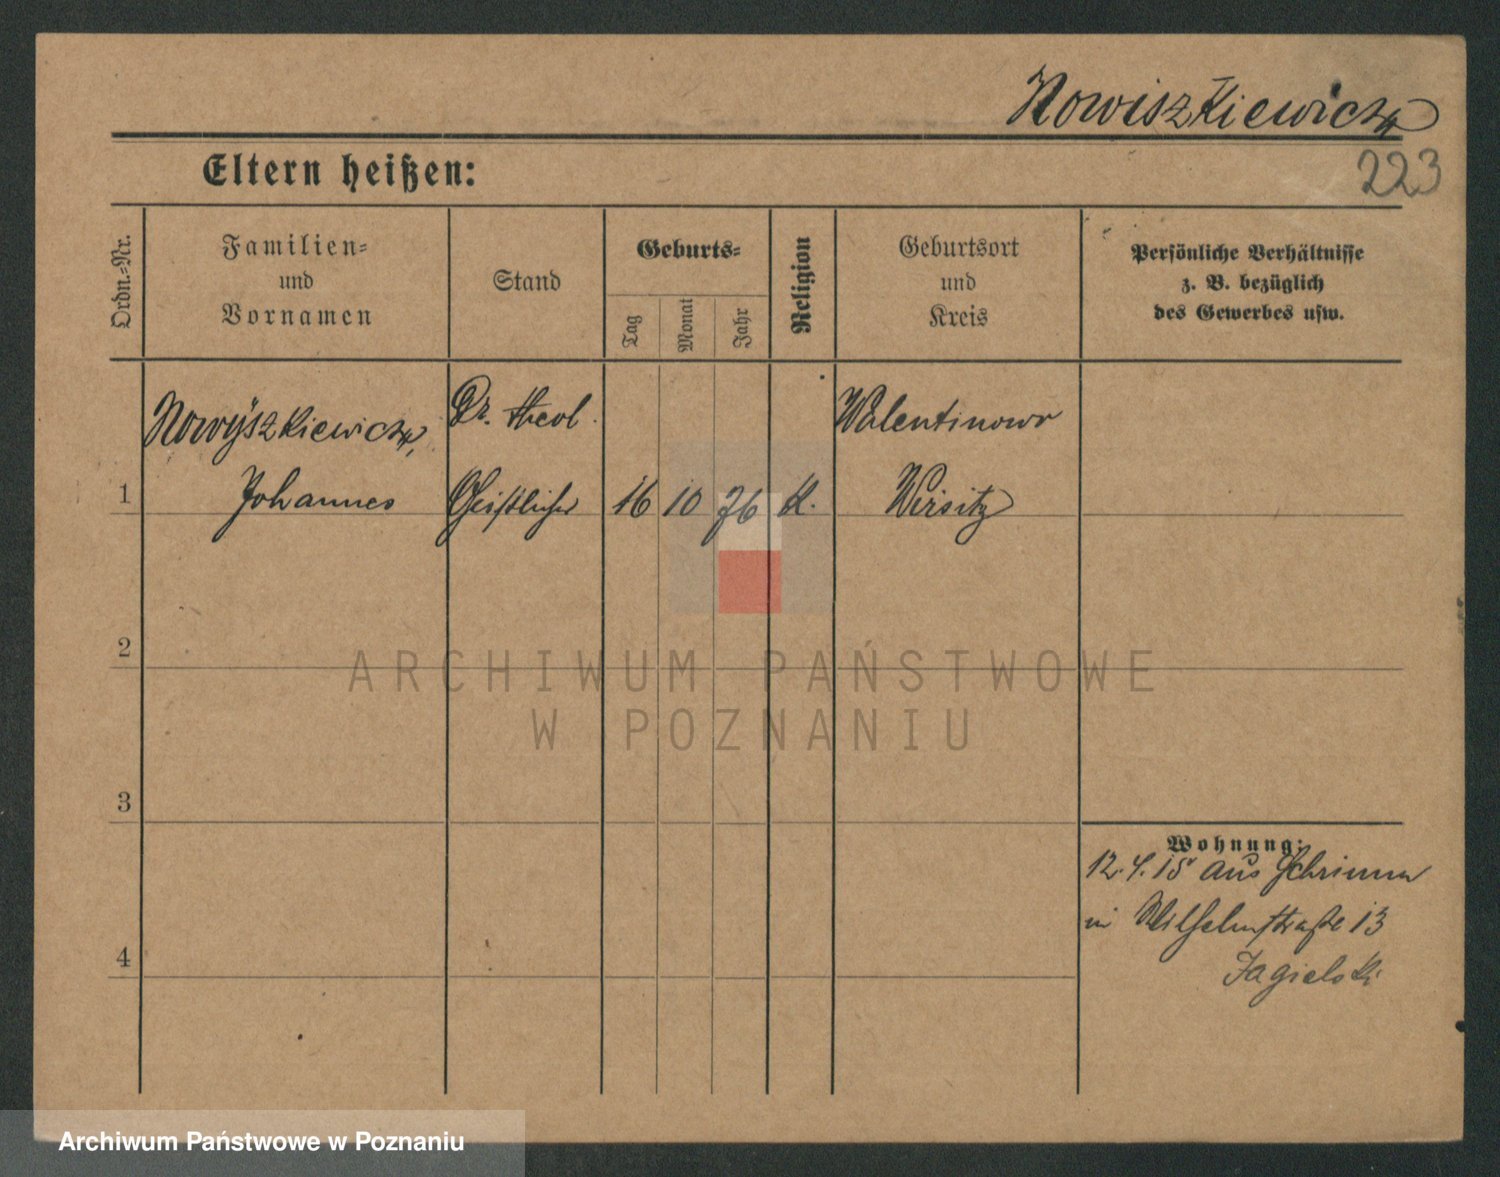 Nowiszkiewicz
Eltern heißen:
223
Ordn.-Nr.
Familien-
und
Vornamen
Stand
Geburts-
Tag
Monat
Jahr
Religion
Geburtsort
und
Kreis
Persönliche Verhältnisse
z. B. bezüglich
des Gewerbes usw.
Nowÿszkiewicz,
Dr. theol.
Walentinowo
1
Johannes
Geistlicher
16
10
76
K.
Wirsitz
2
ARCHIWUM PAŃSTWOWE
W POZNANIU
3
Wohnung:
12.4.15 aus Schrimm
in Wilhelmstraße 13
4
Jagielski
Archiwum Państwowe w Poznaniu